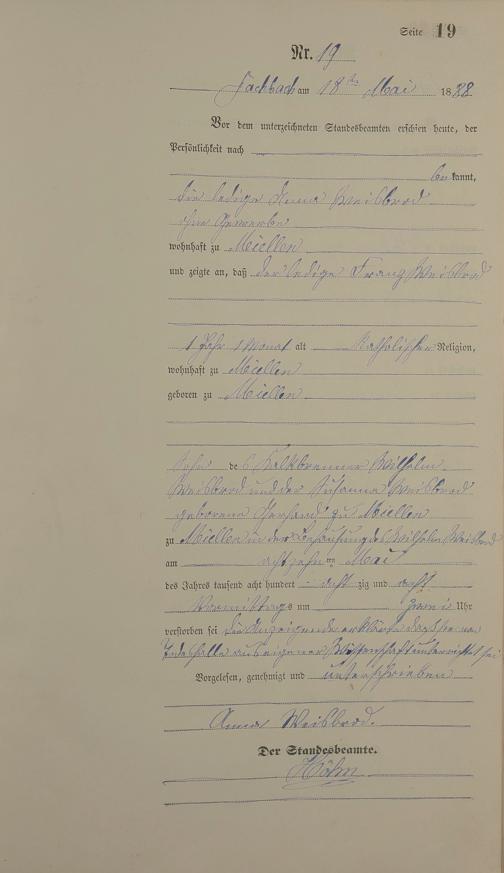 Seite 19
Nr. 19
Fachbach am 18ten Mai 1888
Vor dem unterzeichneten Standesbeamten erschien heute, der
Persönlichkeit nach
bekannt,
die ledige Anna Weisbrod
ohne Gewerbe
wohnhaft zu Miellen
und zeigte an, daß der ledige Franz Weisbrod
1 Jahr 1 Monat alt Katholischer Religion,
wohnhaft zu Miellen
geboren zu Miellen
Sohn des Kalkbrenner Wilhelm
Weisbrod und der Susanna Weisbrod
geborene Gerhard zu Miellen
zu Miellen in der Behausung des Wilhelm Weisbrod
am achtzehnten Mai
des Jahres tausend acht hundert achtzig und acht
Vormittags um zwei Uhr
verstorben sei die Anzeigende erklärte daß sie von
Todesfalle aus eigener Wissenschaft unterrichtet sei
Vorgelesen, genehmigt und unterschrieben
Anna Weisbrod.
Der Standesbeamte.
Höhn